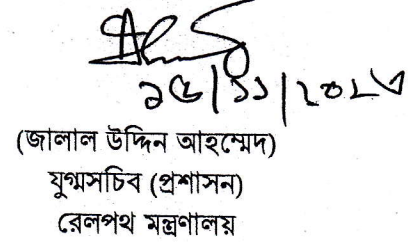 ১৫/১১/২০২৩
(জালাল উদ্দিন আহম্মেদ)
যুগ্মসচিব (প্রশাসন)
রেলপথ মন্ত্রণালয়